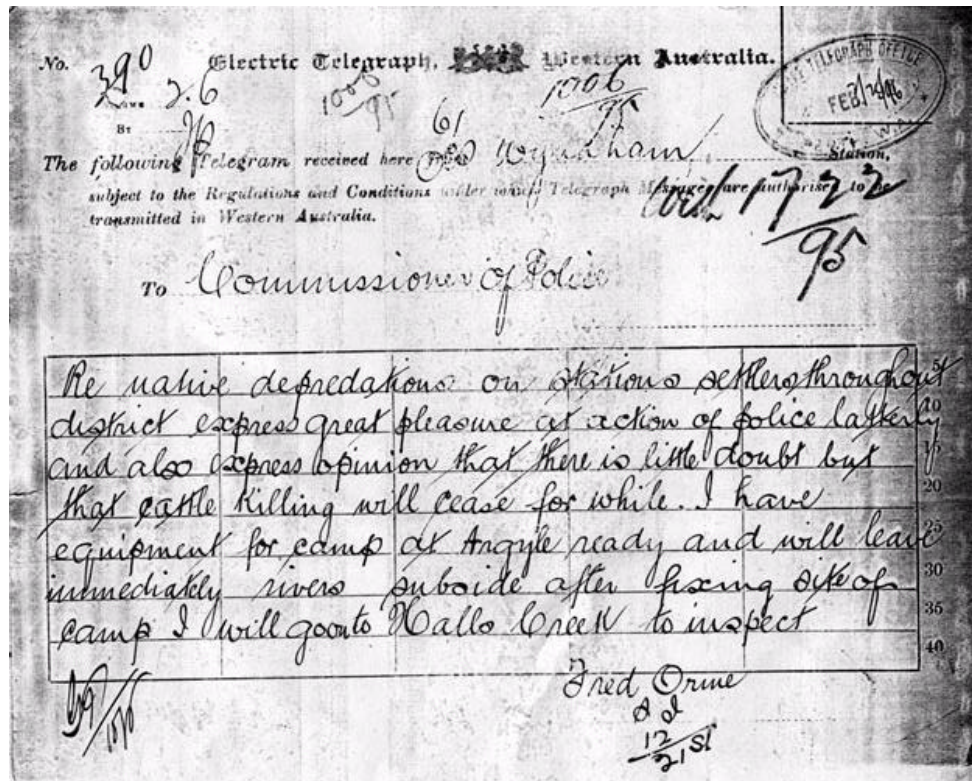 No. 390 Electric Telegraph, Western Australia.
2.6 1006/95 1006/95
TELEGRAPH OFFICE
FEB
By 61
The following Telegram received here from Wyndham Station,
subject to the Regulations and Conditions under which Telegraph Messages are authorised to be
transmitted in Western Australia.
With 1722/95
To Commissioner of Police
Re native depredations on stations settlers throughout
5
district express great pleasure at action of police latterly
10
and also express opinion that there is little doubt but
15
that cattle killing will cease for while. I have
20
equipment for camp at Argyle ready and will leave
25
immediately rivers subside after fixing site of
30
camp I will go on to Halls Creek to inspect
35
40
Fred Orme
S I
12/21 St